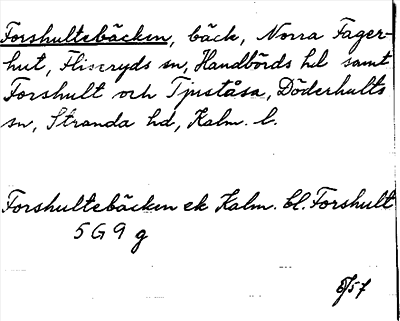 Forshultebäcken, bäck, Norra Fager-
hut, Fliseryds sn, Handbörds hd samt
Forshult och Tjuståsa, Döderhults
sn, Stranda hd, Kalm. l.
Forshultebäcken ek Kalm. bl. Forshult
5 G 9 g
8/57